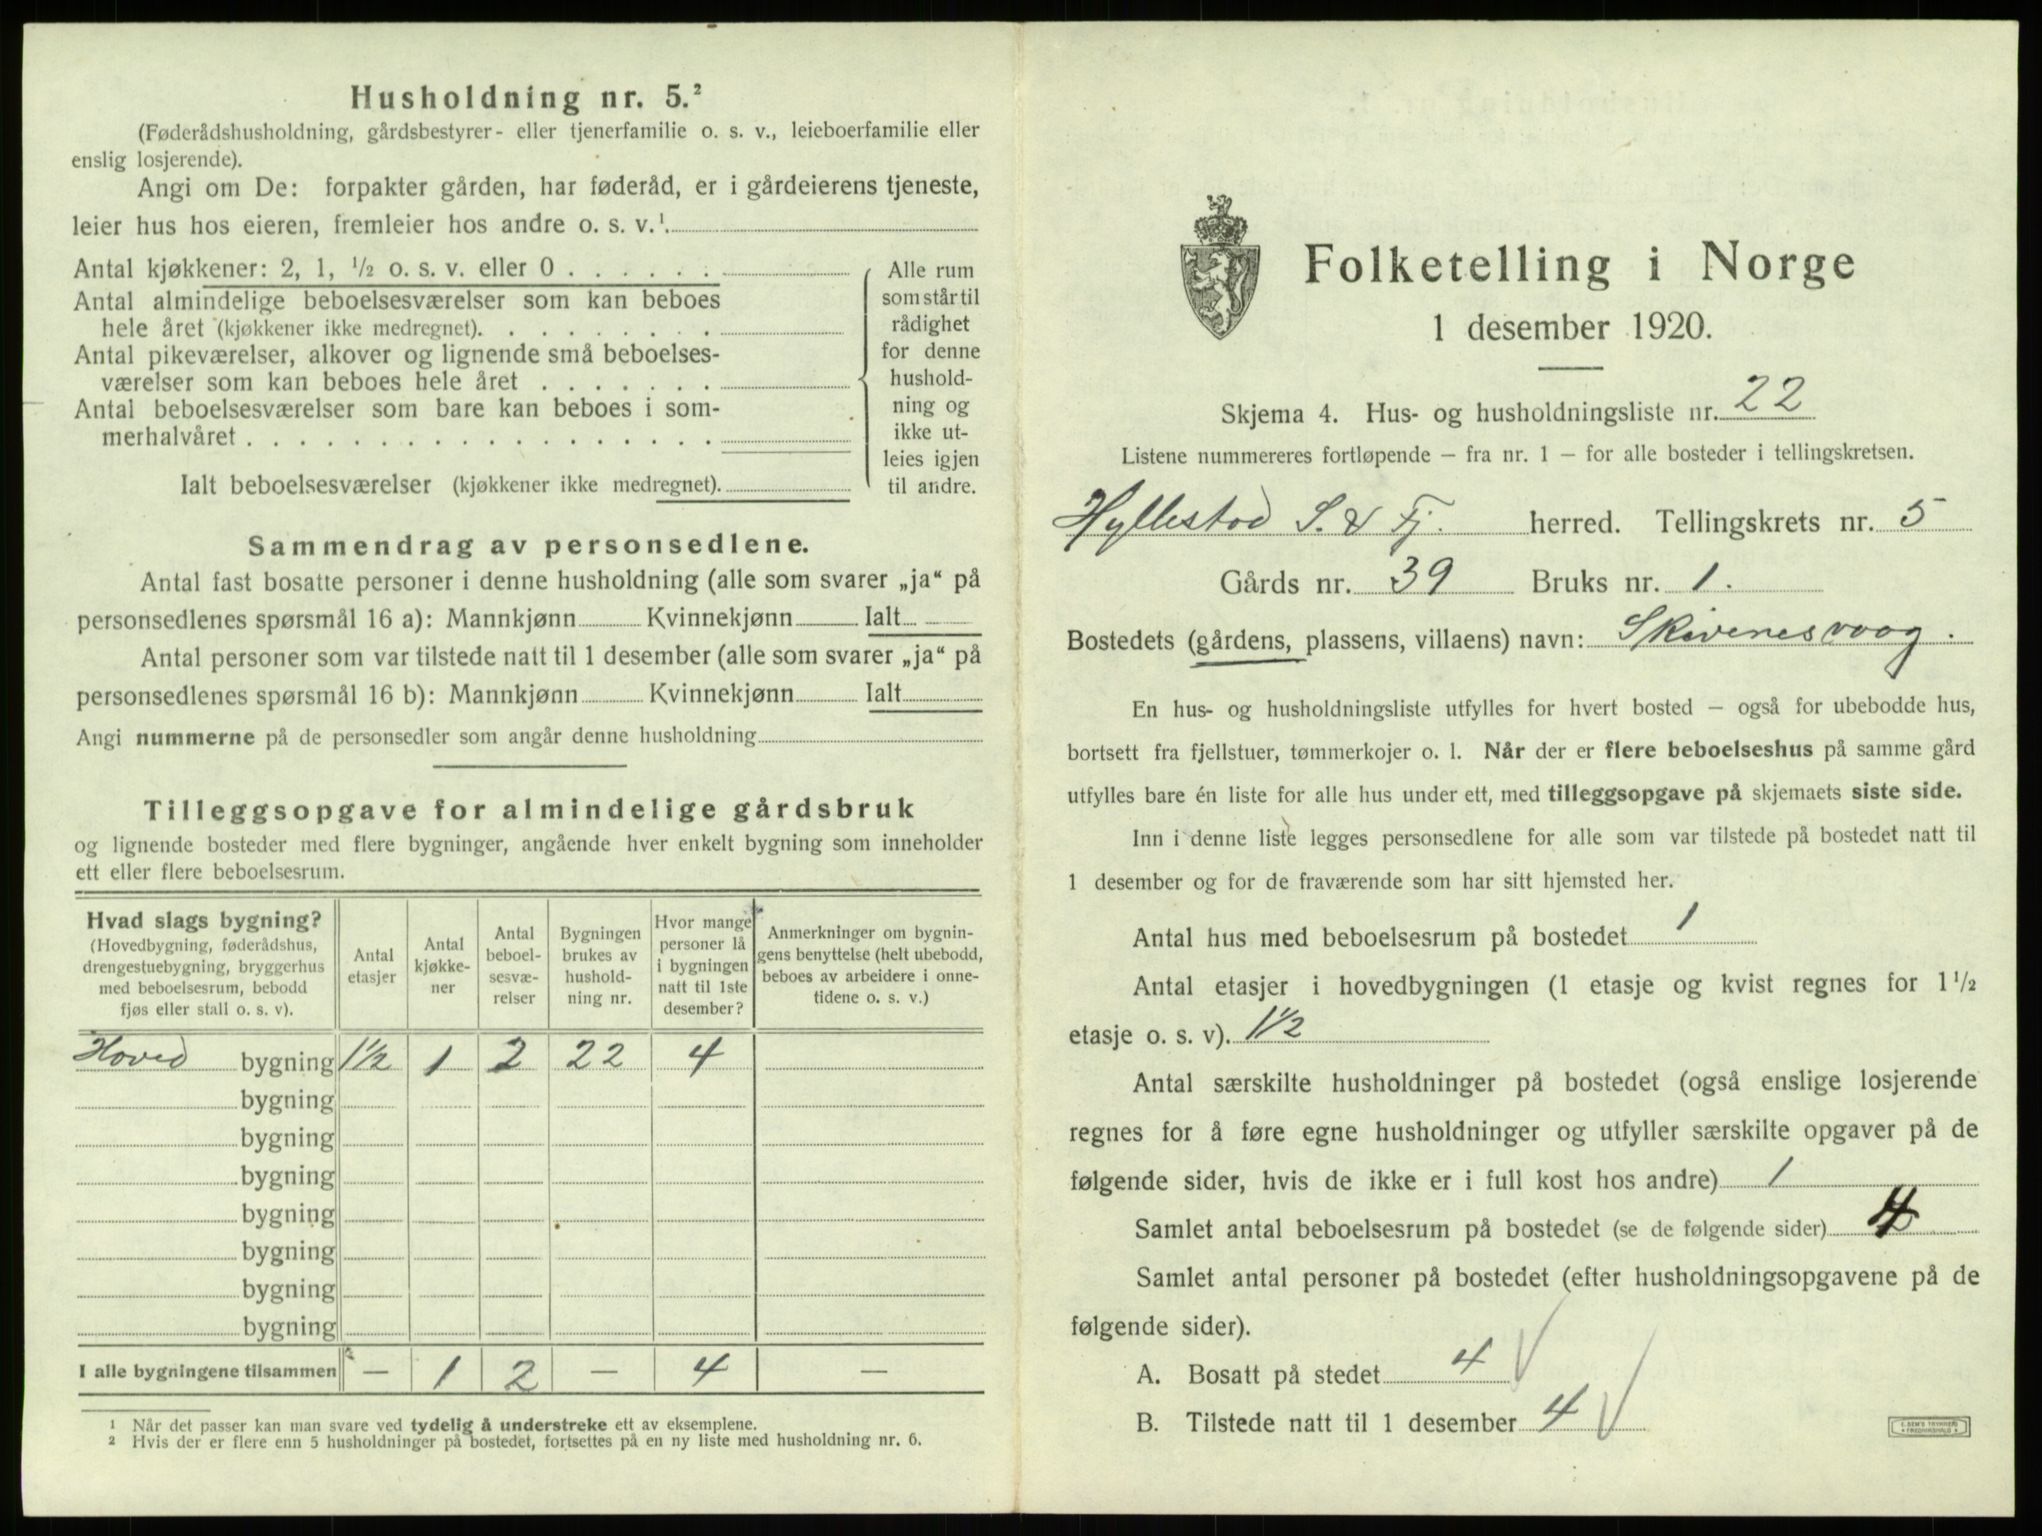 Husholdning nr. 5.²
(Føderådshusholdning, gårdsbestyrer- eller tjenerfamilie o. s. v., leieboerfamilie eller
enslig losjerende).
Angi om De: forpakter gården, har føderåd, er i gårdeierens tjeneste,
leier hus hos eieren, fremleier hos andre o. s. v.¹
Antal kjøkkener: 2, 1, ½ o. s. v. eller 0 . . . . . .
Antal almindelige beboelsesværelser som kan beboes
hele året (kjøkkener ikke medregnet). . . . . . . . .
Antal pikeværelser, alkover og lignende små beboelses-
værelser som kan beboes hele året . . . . . . .
Antal beboelsesværelser som bare kan beboes i som-
merhalvåret . . . . . . . . . . . . . . . . . .
Ialt beboelsesværelser (kjøkkener ikke medregnet).
Alle rum
som står til
rådighet
for denne
hushold-
ning og
ikke ut-
leies igjen
til andre.
Sammendrag av personsedlene.
Antal fast bosatte personer i denne husholdning (alle som svarer „ja“ på
personsedlenes spørsmål 16 a): Mannkjønn Kvinnekjønn Ialt
Antal personer som var tilstede natt til 1 desember (alle som svarer „ja“ på
personsedlenes spørsmål 16 b): Mannkjønn Kvinnekjønn Ialt
Angi nummerne på de personsedler som angår denne husholdning
Tilleggsopgave for almindelige gårdsbruk
og lignende bosteder med flere bygninger, angående hver enkelt bygning som inneholder
ett eller flere beboelsesrum.
Hvad slags bygning?
(Hovedbygning, føderådshus,
drengestuebygning, bryggerhus
med beboelsesrum, bebodd
fjøs eller stall o. s. v).
Antal
etasjer
Antal
kjøkke-
ner
Antal
beboel-
sesvæ-
relser
Bygningen
brukes av
hushold-
ning nr.
Hvor mange
personer lå
i bygningen
natt til 1ste
desember?
Anmerkninger om bygnin-
gens benyttelse (helt ubebodd,
beboes av arbeidere i onne-
tidene o. s. v.)
Hoved bygning 1½ 1 2 22 4
bygning
bygning
bygning
bygning
bygning
bygning
bygning
I alle bygningene tilsammen — 1 2 — 4 —
¹ Når det passer kan man svare ved tydelig å understreke ett av eksemplene.
² Hvis der er flere enn 5 husholdninger på bostedet, fortsettes på en ny liste med husholdning nr. 6.
Folketelling i Norge
1 desember 1920.
Skjema 4. Hus- og husholdningsliste nr. 22
Listene nummereres fortløpende – fra nr. 1 – for alle bosteder i tellingskretsen.
Hyllestad S. & Fj. herred. Tellingskrets nr. 5
Gårds nr. 39 Bruks nr. 1.
Bostedets (gårdens, plassens, villaens) navn: Skivenesvaag.
En hus- og husholdningsliste utfylles for hvert bosted – også for ubebodde hus,
bortsett fra fjellstuer, tømmerkojer o. l. Når der er flere beboelseshus på samme gård
utfylles bare én liste for alle hus under ett, med tilleggsopgave på skjemaets siste side.
Inn i denne liste legges personsedlene for alle som var tilstede på bostedet natt til
1 desember og for de fraværende som har sitt hjemsted her.
Antal hus med beboelsesrum på bostedet 1
Antal etasjer i hovedbygningen (1 etasje og kvist regnes for 1½
etasje o. s. v). 1½
Antal særskilte husholdninger på bostedet (også enslige losjerende
regnes for å føre egne husholdninger og utfyller særskilte opgaver på de
følgende sider, hvis de ikke er i full kost hos andre) 1
Samlet antal beboelsesrum på bostedet (se de følgende sider) 4
Samlet antal personer på bostedet (efter husholdningsopgavene på de
følgende sider).
A. Bosatt på stedet 4
B. Tilstede natt til 1 desember 4